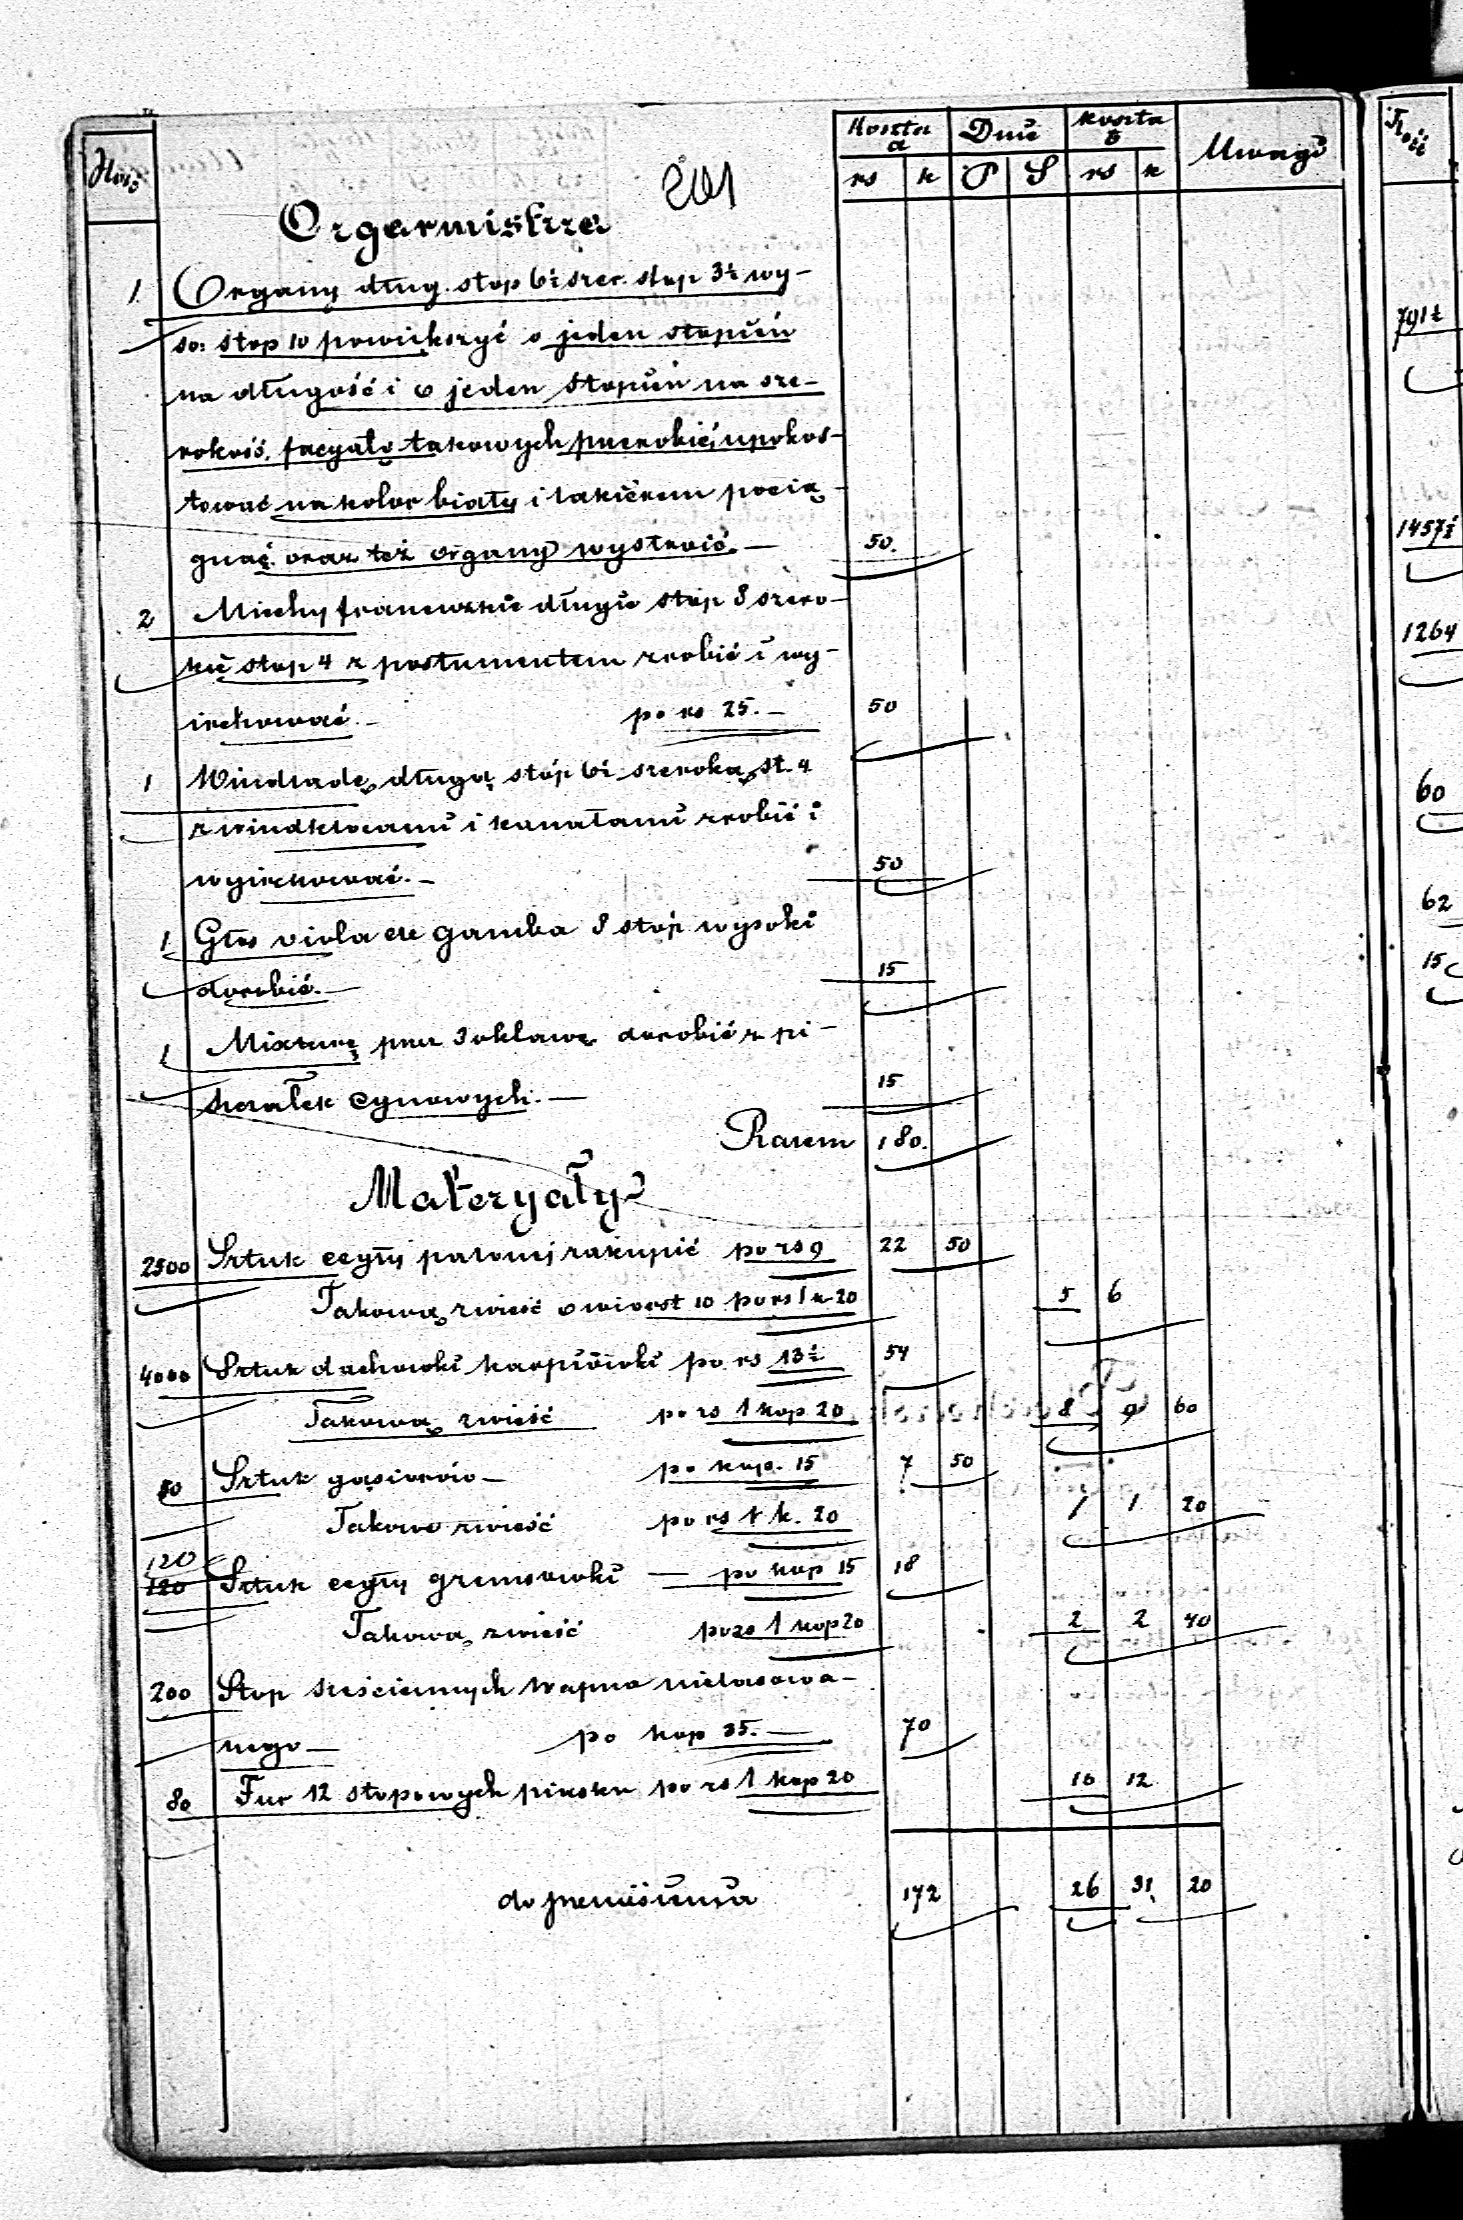 Ilość
Koszta a Dnie koszta b Uwagi
rs k P S rs k
201
Organmistrza
1 Organy dług. stop 6½ szer. stop 3½ wy-
so: stop 10 powiększyć o jeden stopień
na długość i o jeden stopień na sze-
rokość, facyaty takowych przerobić, upokos-
tować na kolor biały i lakierem pocią-
gnąć oraz też organy wystroić.— 50.
2 Miechy francuzkie długie stóp 8 szero-
kie stop 4 z postumentem zrobić i wy-
irchować.— po rs 25.— 50
1 Windladę długą stóp 6½ szeroką st. 4
z windklocami i kanałami zrobić i
wyirchować.— 50
1 Głos viola de gamba 8 stóp wysoki
dorobić.— 15
1 Mixturę przez oklawę dorobić z pi-
szczałek cynowych.— 15
Razem 180.
Materyały
2500 Sztuk cegły palonej zakupić po rs 9 22 50
Takową zwieść o wiorst 10 po rs 1 k 20 5 6
4000 Sztuk dachówki karpiówki po rs 13½ 54
Takową zwieść po rs 1 kop 20 8 9 60
50 Sztuk gąsiorów — po kop. 15 7 50
Takowe zwieść po rs 1 k. 20 1 1 20
120
120 Sztuk cegły gzemsówki — po kop 15 18
Takową zwieść po rs 1 kop 20 2 2 40
200 Stop sześciennych wapna nielasowa-
nego — po kop 35.— 70
80 Fur 12 stopowych piasku po rs 1 kop 20 10 12
do przeniesienia 172 26 31 20
Ilość
791½
1457½
1264
60
62
15